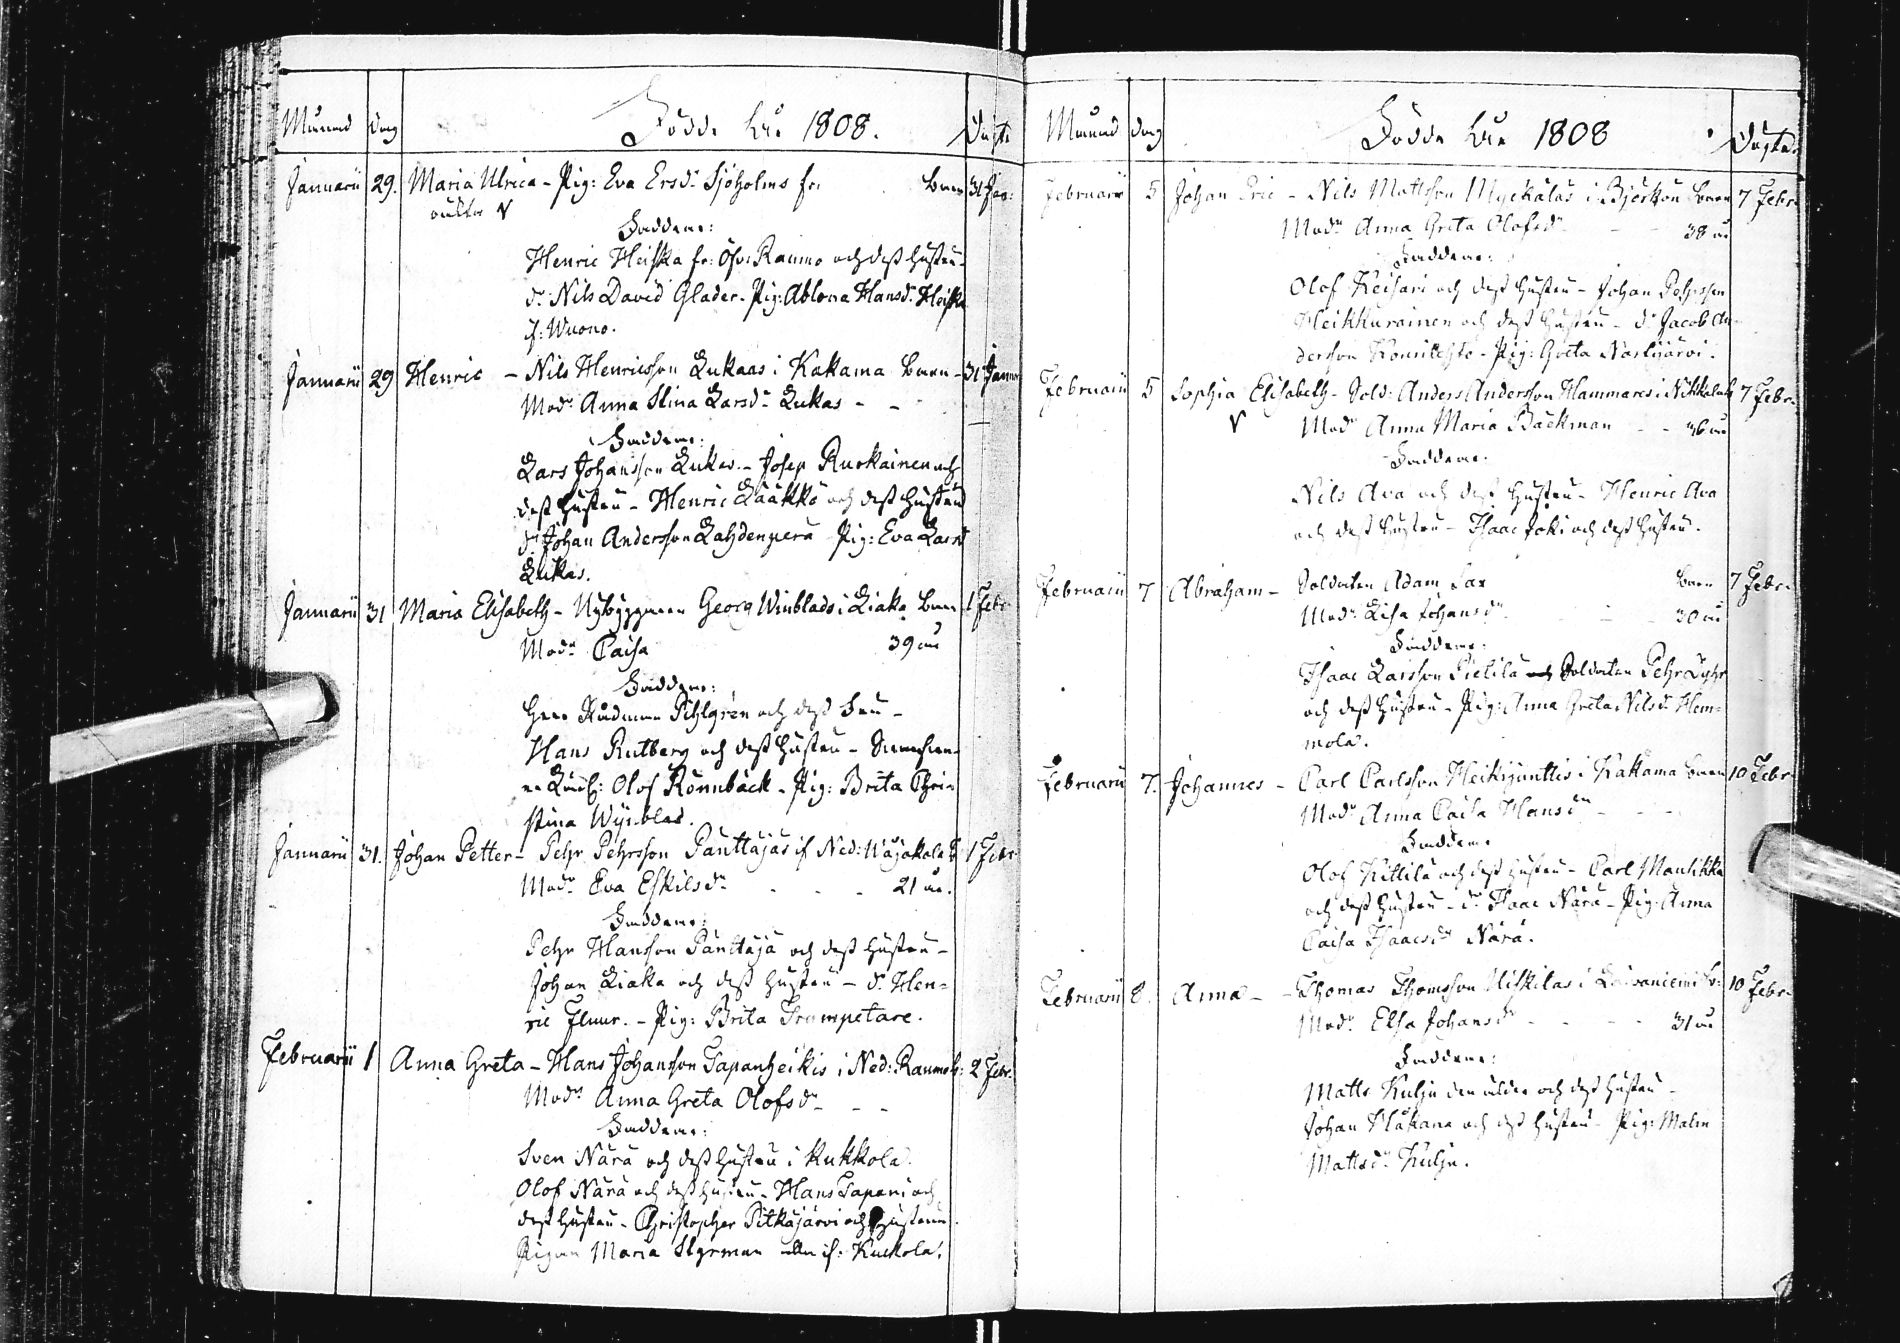 Månad dag Födde År 1808. Döpte
Januarii 29. Maria Ulrica - Pig: Eva Ersd:r Sjöholms fr: barn 31 Jan:
oäkta V
Faddrar:
Henric Heiska fr: Öfv: Raumo och dess hustru -
d:n Nils David Glader - Pig: Ablona Hansd:r Heiska
if: Wuono.
Januarii 29 Henric - Nils Henricsson Lukaas i Kakama barn - 31 Januar
Mod:n Anna Stina Larsd:r Lukas -
Faddrar:
Lars Johansson Lukas - Josep Ruokainen och
dess hustru - Henric Lääkkö och dess hustru
d:n Johan Andersson Lahdenperä Pig: Eva Larsd
Lukas.
Januarii 31 Maria Elisabeth - Nybyggaren Georg Winblads i Liaka Barn 1 Febr
Mod:n Caisa 39 år
Faddrar:
Herr Rådman Pihlgrén och dess Fru -
Hans Rutberg och dess hustru -
Olof Rönnbäck - Pig: Brita Chri-
stina Wynblad.
Januarii 31. Johan Petter - Pehr Pehrsson Pänttäjäs if Ned: Wojakala B 1 Febr
Mod:n Eva Eskilsd:r - - 21 år.
Faddrar:
Pehr Hansson Pänttäjä och dess hustru -
Johan Liaka och dess hustru - d:n Hen-
ric Fluur. - Pig: Brita Trumpetare.
Februarii 1 Anna Greta - Hans Johansson Tapanheikis i Ned: Raumo b: 2 Febr.
Mod:n Anna Greta Olofsd:r - -
Faddrar:
Sven Närä och dess hustru i Kukkola.
Olof Närä och dess hustru - Hans Tapani och
dess hustru - Christopher Pitkäjärvi och hustrun
Pigan Maria Styrman alla if: Kuckola.
Månad dag Födde År 1808 Döpte
Februarii 5 Johan Eric - Nils Mattsson Myckälas i Björkön barn 7 Febr
Mod:n Anna Greta Olofsd:r - - 38 år
Faddrar:
Olof Keisari och dess hustru - Johan Pehrsson
Heikkurainen och dess hustru - d:n Jacob An-
dersson Konsilehto - Pig: Greta Naskijärvi.
Februarii 5 Sophia Elisabeth - Sold: Anders Andersson Hammares i Nikkala b 7 Febr
V Mod:n Anna Maria Bäckman - - 36 år
Faddrar:
Nils Ava och dess hustru - Henric Ava
och dess hustru - Isaac Joki och dess hustru.
Februarii 7 Abraham - Soldaten Adam Lax barn 7 Febr
Mod:n Lisa Johansd:r - - 30 år
Faddrar:
Isaac Larsson Pietilä och Soldaten Pehr
och dess hustru - Pig: Anna Greta Nilsd:r Hem-
mola.
Februarii 7. Johannes - Carl Carlsson Heikijunttis i Kakama barn 10 Febr
Mod:n Anna Caisa Hansd:r - -
Faddrar
Olof Kittilä och dess hustru - Carl Mantikka
och dess hustru - d:n Isaac Närä - Pig: Anna
Caisa Isaacsd:r Närä.
Februarii 8. Anna - Thomas Thomsson Uiskilas i Laivaniemi br: 10 Febr
Mod:n Elsa Johansd:r - - 31 år
Faddrar:
Matts Kulju den äldre och dess hustru -
Johan Häkana och dess hustru - Pig: Malin
Mattsd:r Kulju.